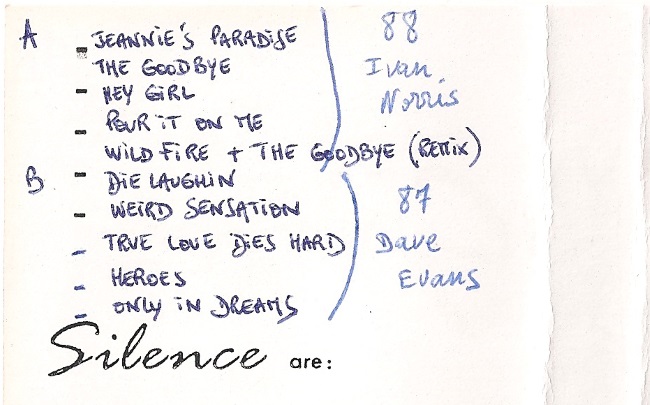 A - JEANNIE'S PARADISE 88
THE GOODBYE Ivan
- HEY GIRL Norris
- POUR IT ON ME
- WILD FIRE + THE GOODBYE (REMIX)
B - DIE LAUGHIN
- WEIRD SENSATION 87
- TRUE LOVE DIES HARD Dave
- HEROES Evans
- ONLY IN DREAMS
Silence are: